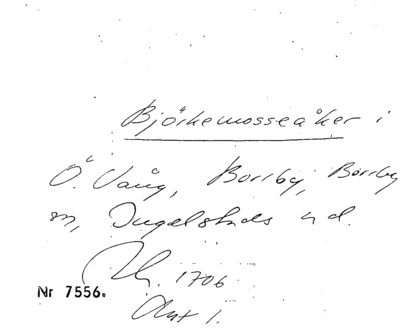 Björkemosseåker i
Ö. Vång, Borrby, Borrby
sn, Ingelstads hd.
1706
Nr 7556.
Akt 1.